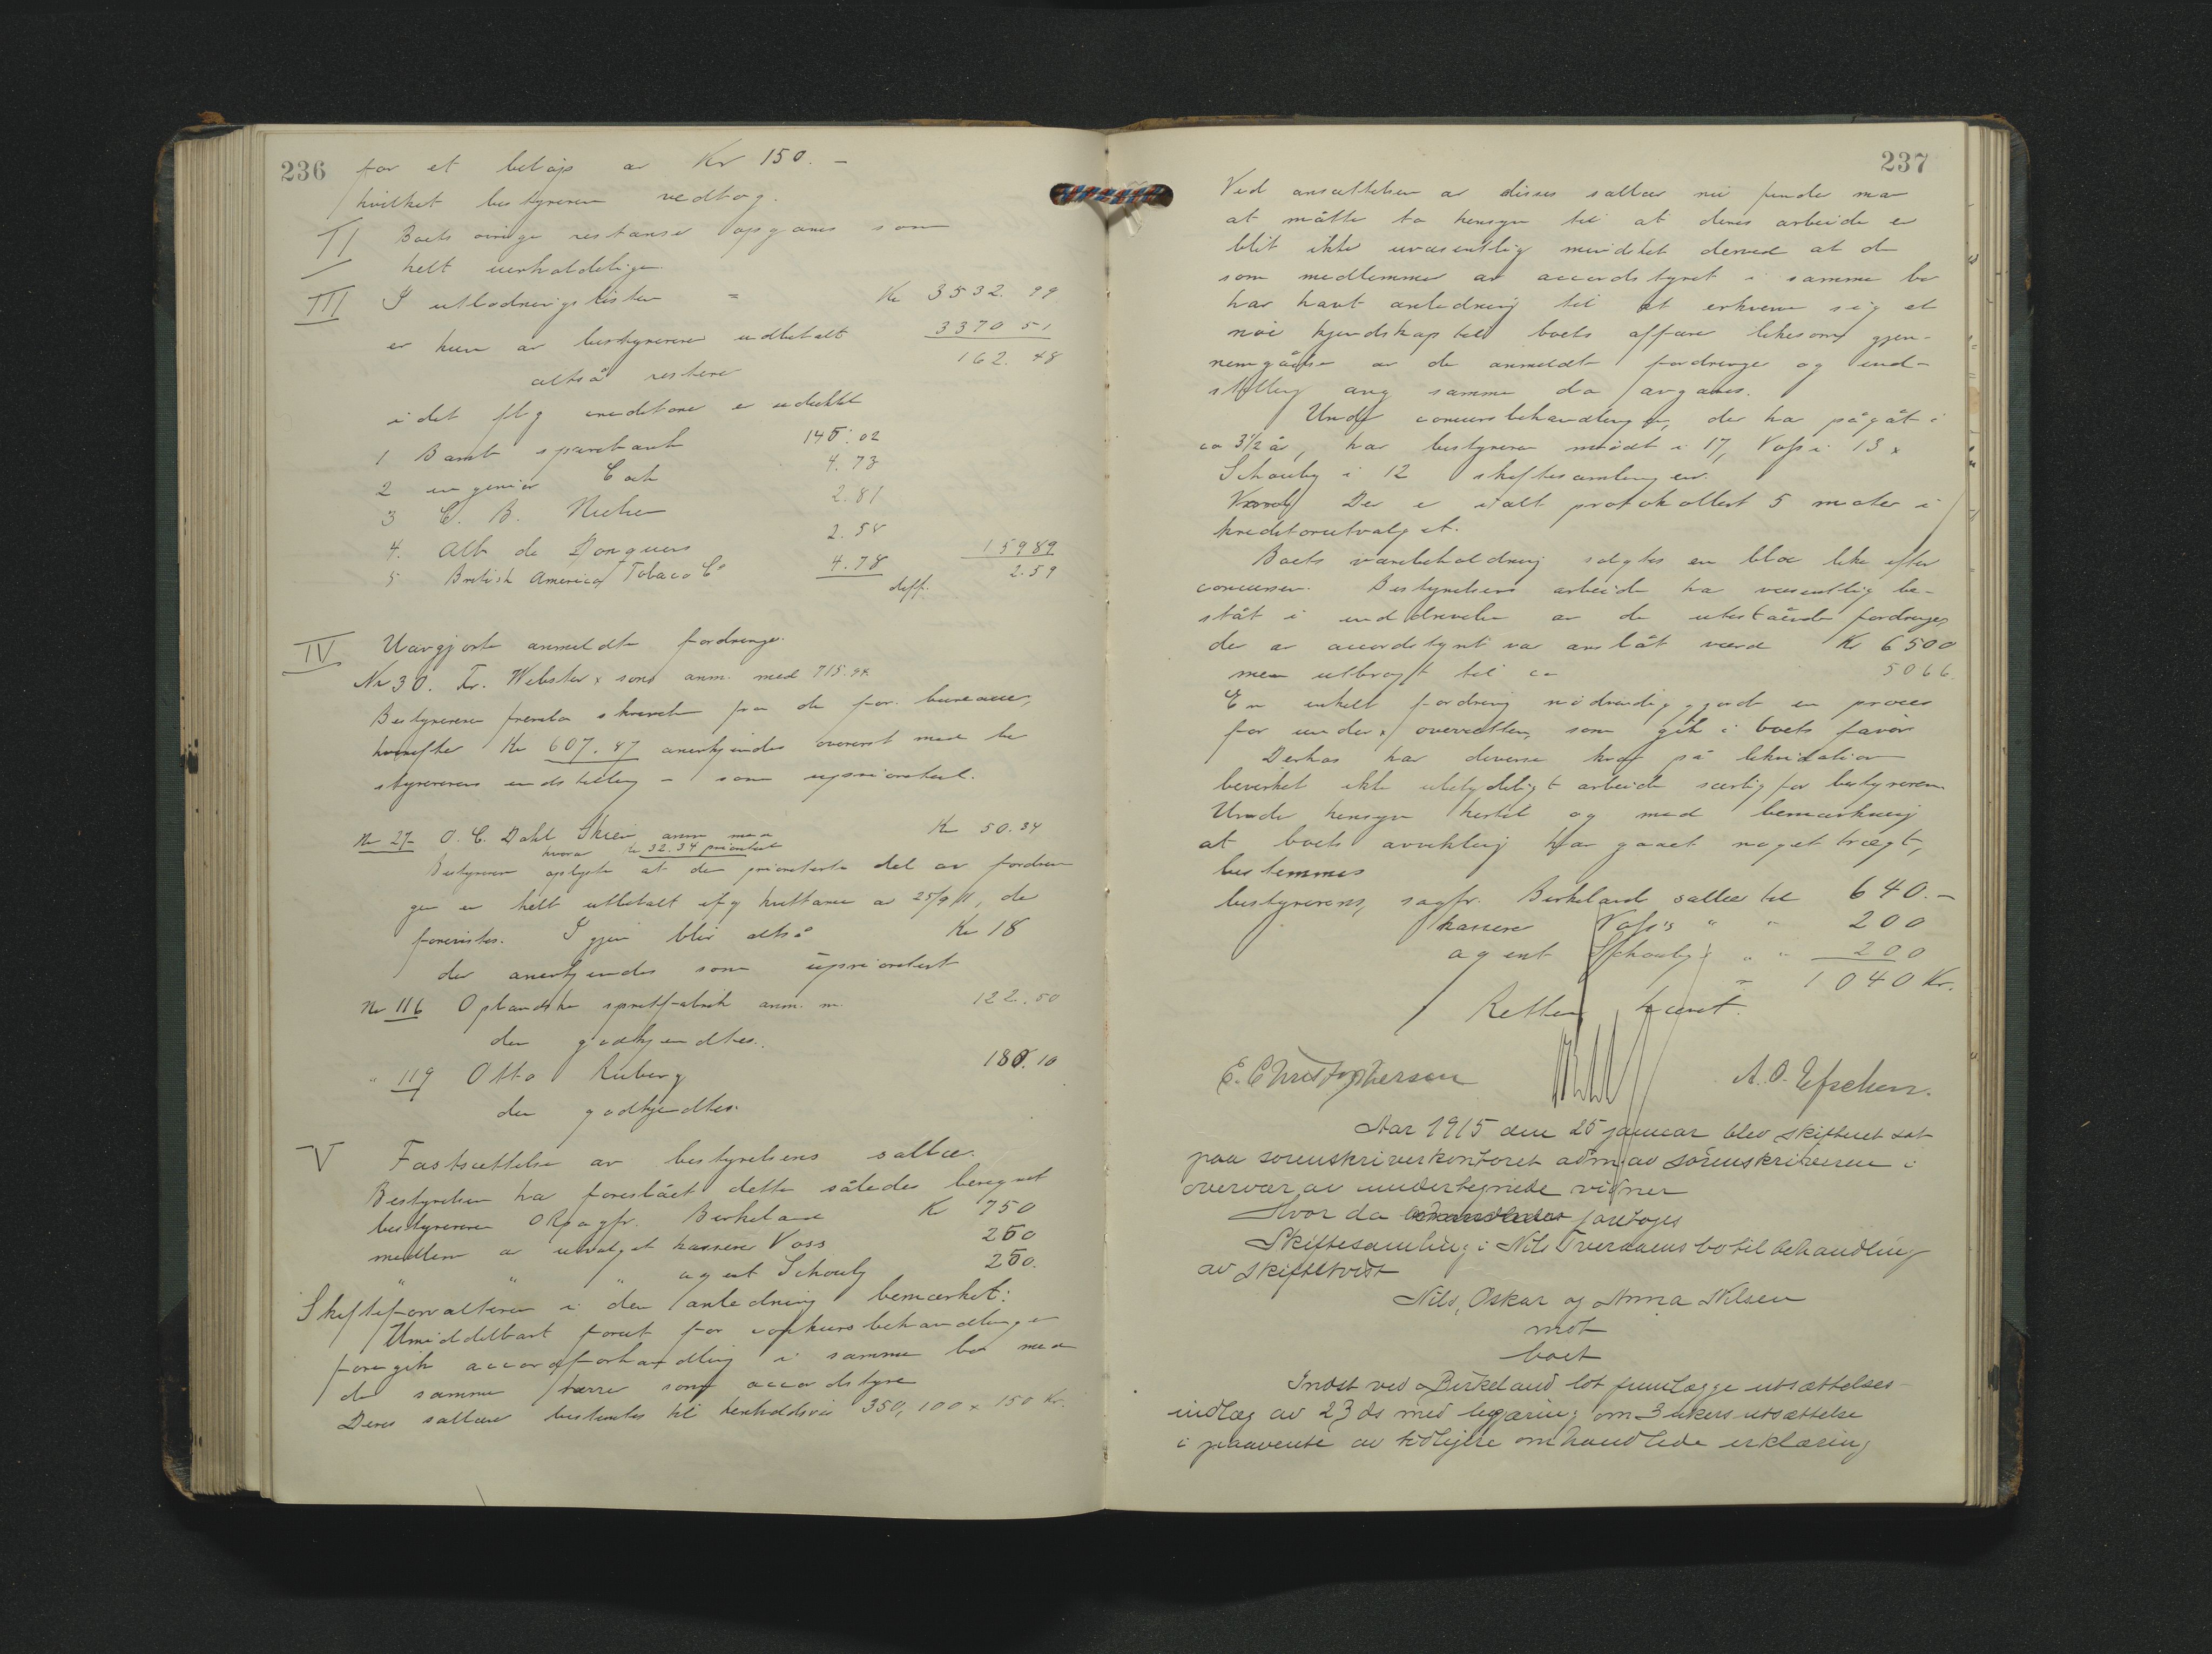 236
for et beløp av Kr 150.-
hvilket bestyreren vedtog.
II Boets øvrige restanser opgaves som
helt uerholdelige.
III I utlodningslisten = Kr 3532.99
er kun av bestyreren udbetalt 3370 51
altså restere 162.48
idet flg creditorer er
1 Bamle sparebank 145.02
2 ingeniør 4.73
3 C. B. Nielsen 2.81
4. Alb de 2.55
5 British American Tobaco Co 4.78 159 89
diff. 2.59
IV Uavgjorte anmeldte fordringer.
Nr 30. Fr. Webster & sons anm. med 715.94
Bestyreren skrivelse fra de for. bureauer,
hvorefter Kr 607.87 anerkjendes overenst med be
styrerens indstilling - som uprioritert.
Nr 27- O. C. Dahl Skien anm med Kr 50.34
hvorav kr 32.34 prioritert
Bestyreren oplyste at den prioriterte del av fordrin
gen er helt utbetalt ifg kvittance av 25/9 11, der
forevistes. Igjen blir altså Kr 18
der anerkjendes som uprioritert
Nr 116 Oplandske spritfabrik anm. m. 122.50
der godkjendtes.
" 119 Otto Ruberg 180.10
der godkjendtes.
V Fastsættelse av bestyrelsens sallær.
Bestyrelsen har foreslået dette således beregnet
bestyreren Birkeland Kr 750
medlem av utvalget kasserer Voss 250
" " " agent Schouby 250.
Skifteforvalteren i den anledning bemærket:
Umiddelbart forut for konkursbehandlingen
foregik accordforhandling i samme bo med
de samme herrer som accordstyre
Deres sallær bestemtes til henholdsvis 350, 100 & 150 Kr.
237
Ved ansættelsen av disses sallær nu funde man
at måtte ta hensyn til at deres arbeide er
blit ikke uvæsentlig mindsket derved at de
som medlemmer av accordstyret i samme bo
har havt anledning til at erhverve sig et
nøie kjendskap til boets affærer likesom gjen-
nemgåelse av de anmeldte fordringer og ind-
stilling ang samme da avgaves.
Under concursbehandlingen, der har pågåt i
ca 3½ år, har bestyreren mødt i 17, Voss i 13 &
Schouby i 12 skiftesamlinger.
Der er ialt protokollert 5 møter i
kreditorutvalget.
Boets varebeholdning solgtes en bloc like efter
concursen. Bestyrelsens arbeide har væsentlig be-
ståt i inddrivelse av de utestående fordringer,
der av accordstyret var anslåt værd Kr 6500
men utbragt til ca 5066.
En enkelt fordring nødvendiggjorde en proces
for under & overretten, som gik i boets favør
Derhos har diverse krav på likvidation
bevirket ikke ubetydeligt arbeide særlig for bestyreren
Under hensyn hertil og med bemærkning
at boets avvikling har gaaet noget trægt,
bestemmes
bestyrerens, sagfr. Birkeland sallær til 640.-
kasserer Voss's " " 200
agent Schouby's " " 200
= 1040 Kr.
Retten hævet.
E. Christophersen
A. O. Efschen.
Aar 1915 den 25 januar blev skifteret sat
paa sorenskriverkontoret adm. av sorenskriveren i
overvær av undertegnede vidner
Hvor da foretoges
Skiftesamling i Nils Tverdaens bo til behandling
av skiftetvist
Nils, Oskar og Anna Nilsen
mot
boet
Indst ved Birkeland lot fremlægge utsættelses-
indlæg av 23 ds med begjæring om 3 ukers utsættelse
i paavente av tidligere omhandlede erklæring